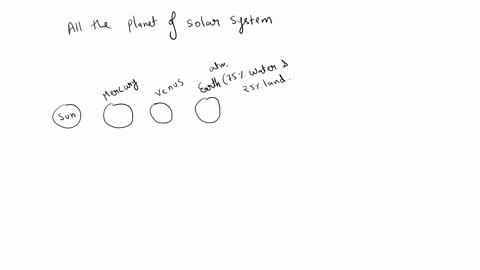 All the planet of solar system
atm.
Mercury
Venus
Earth (75% water &
25% land.
Sun